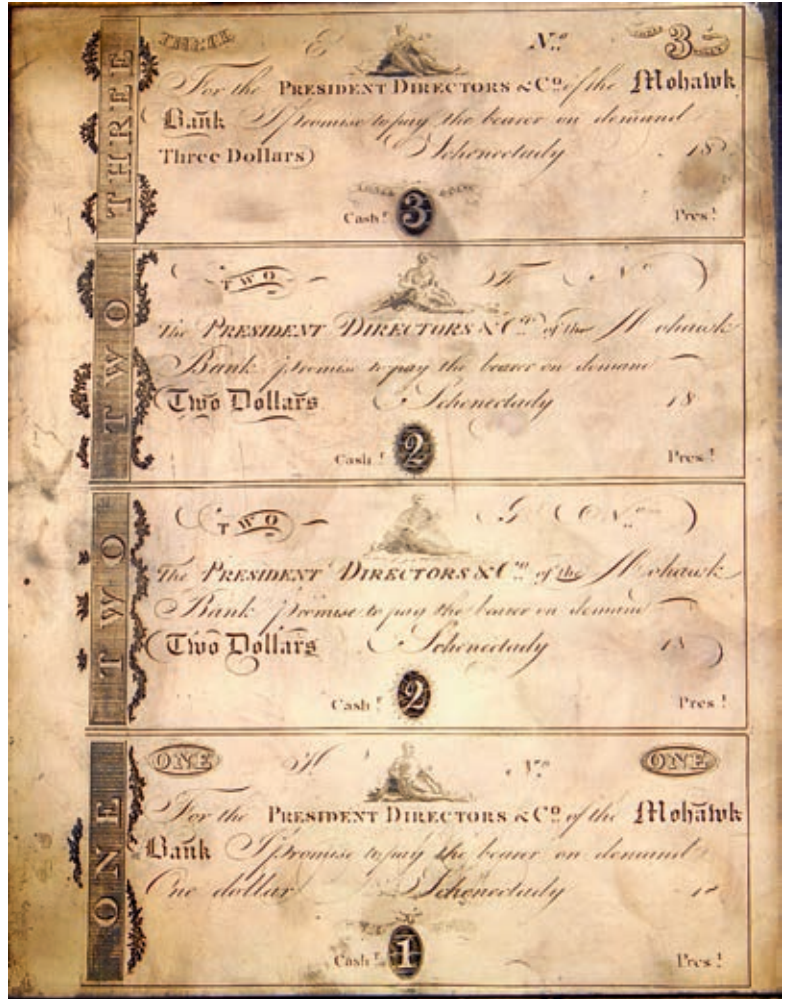 THREE
THREE E No. 3
For the PRESIDENT DIRECTORS & Co. of the Mohawk
Bank I promise to pay the bearer on demand
Three Dollars) Schenectady 18
Cash! 3 Pres!
TWO
TWO F No
The PRESIDENT DIRECTORS & Co. of the Mohawk
Bank promise to pay the bearer on demand
Two Dollars Schenectady 18
Cash! 2 Pres!
TWO
TWO G No
The PRESIDENT DIRECTORS & Co. of the Mohawk
Bank promise to pay the bearer on demand
Two Dollars Schenectady 18
Cash! 2 Pres!
ONE
ONE H No ONE
For the PRESIDENT DIRECTORS & Co. of the Mohawk
Bank I promise to pay the bearer on demand
One dollar Schenectady
Cash! 1 Pres!